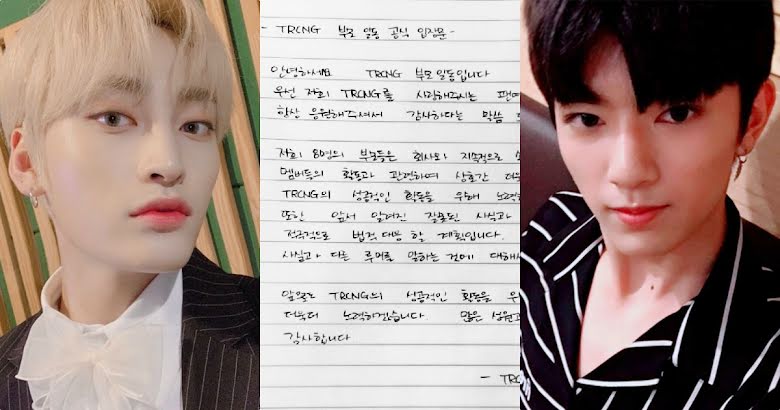 - TRCNG 부모 일동 공식 입장문 -
안녕하세요 TRCNG 부모 일동입니다
우선 저희 TRCNG를 사랑해주시는
항상 응원해주셔서 감사하다는 말씀
저희 8명의 부모들은 회사와 지속적으로
멤버들의 활동과 관련하여 상호간
TRCNG의 성공적인 활동을 위해
또한 앞서 알려진 잘못된 사실과
적극적으로 법적 대응 할 계획입니다.
사실과 다른 루머를 말하는 것에
앞으로 TRCNG의 성공적인 활동을
더욱더 노력하겠습니다 많은
감사합니다